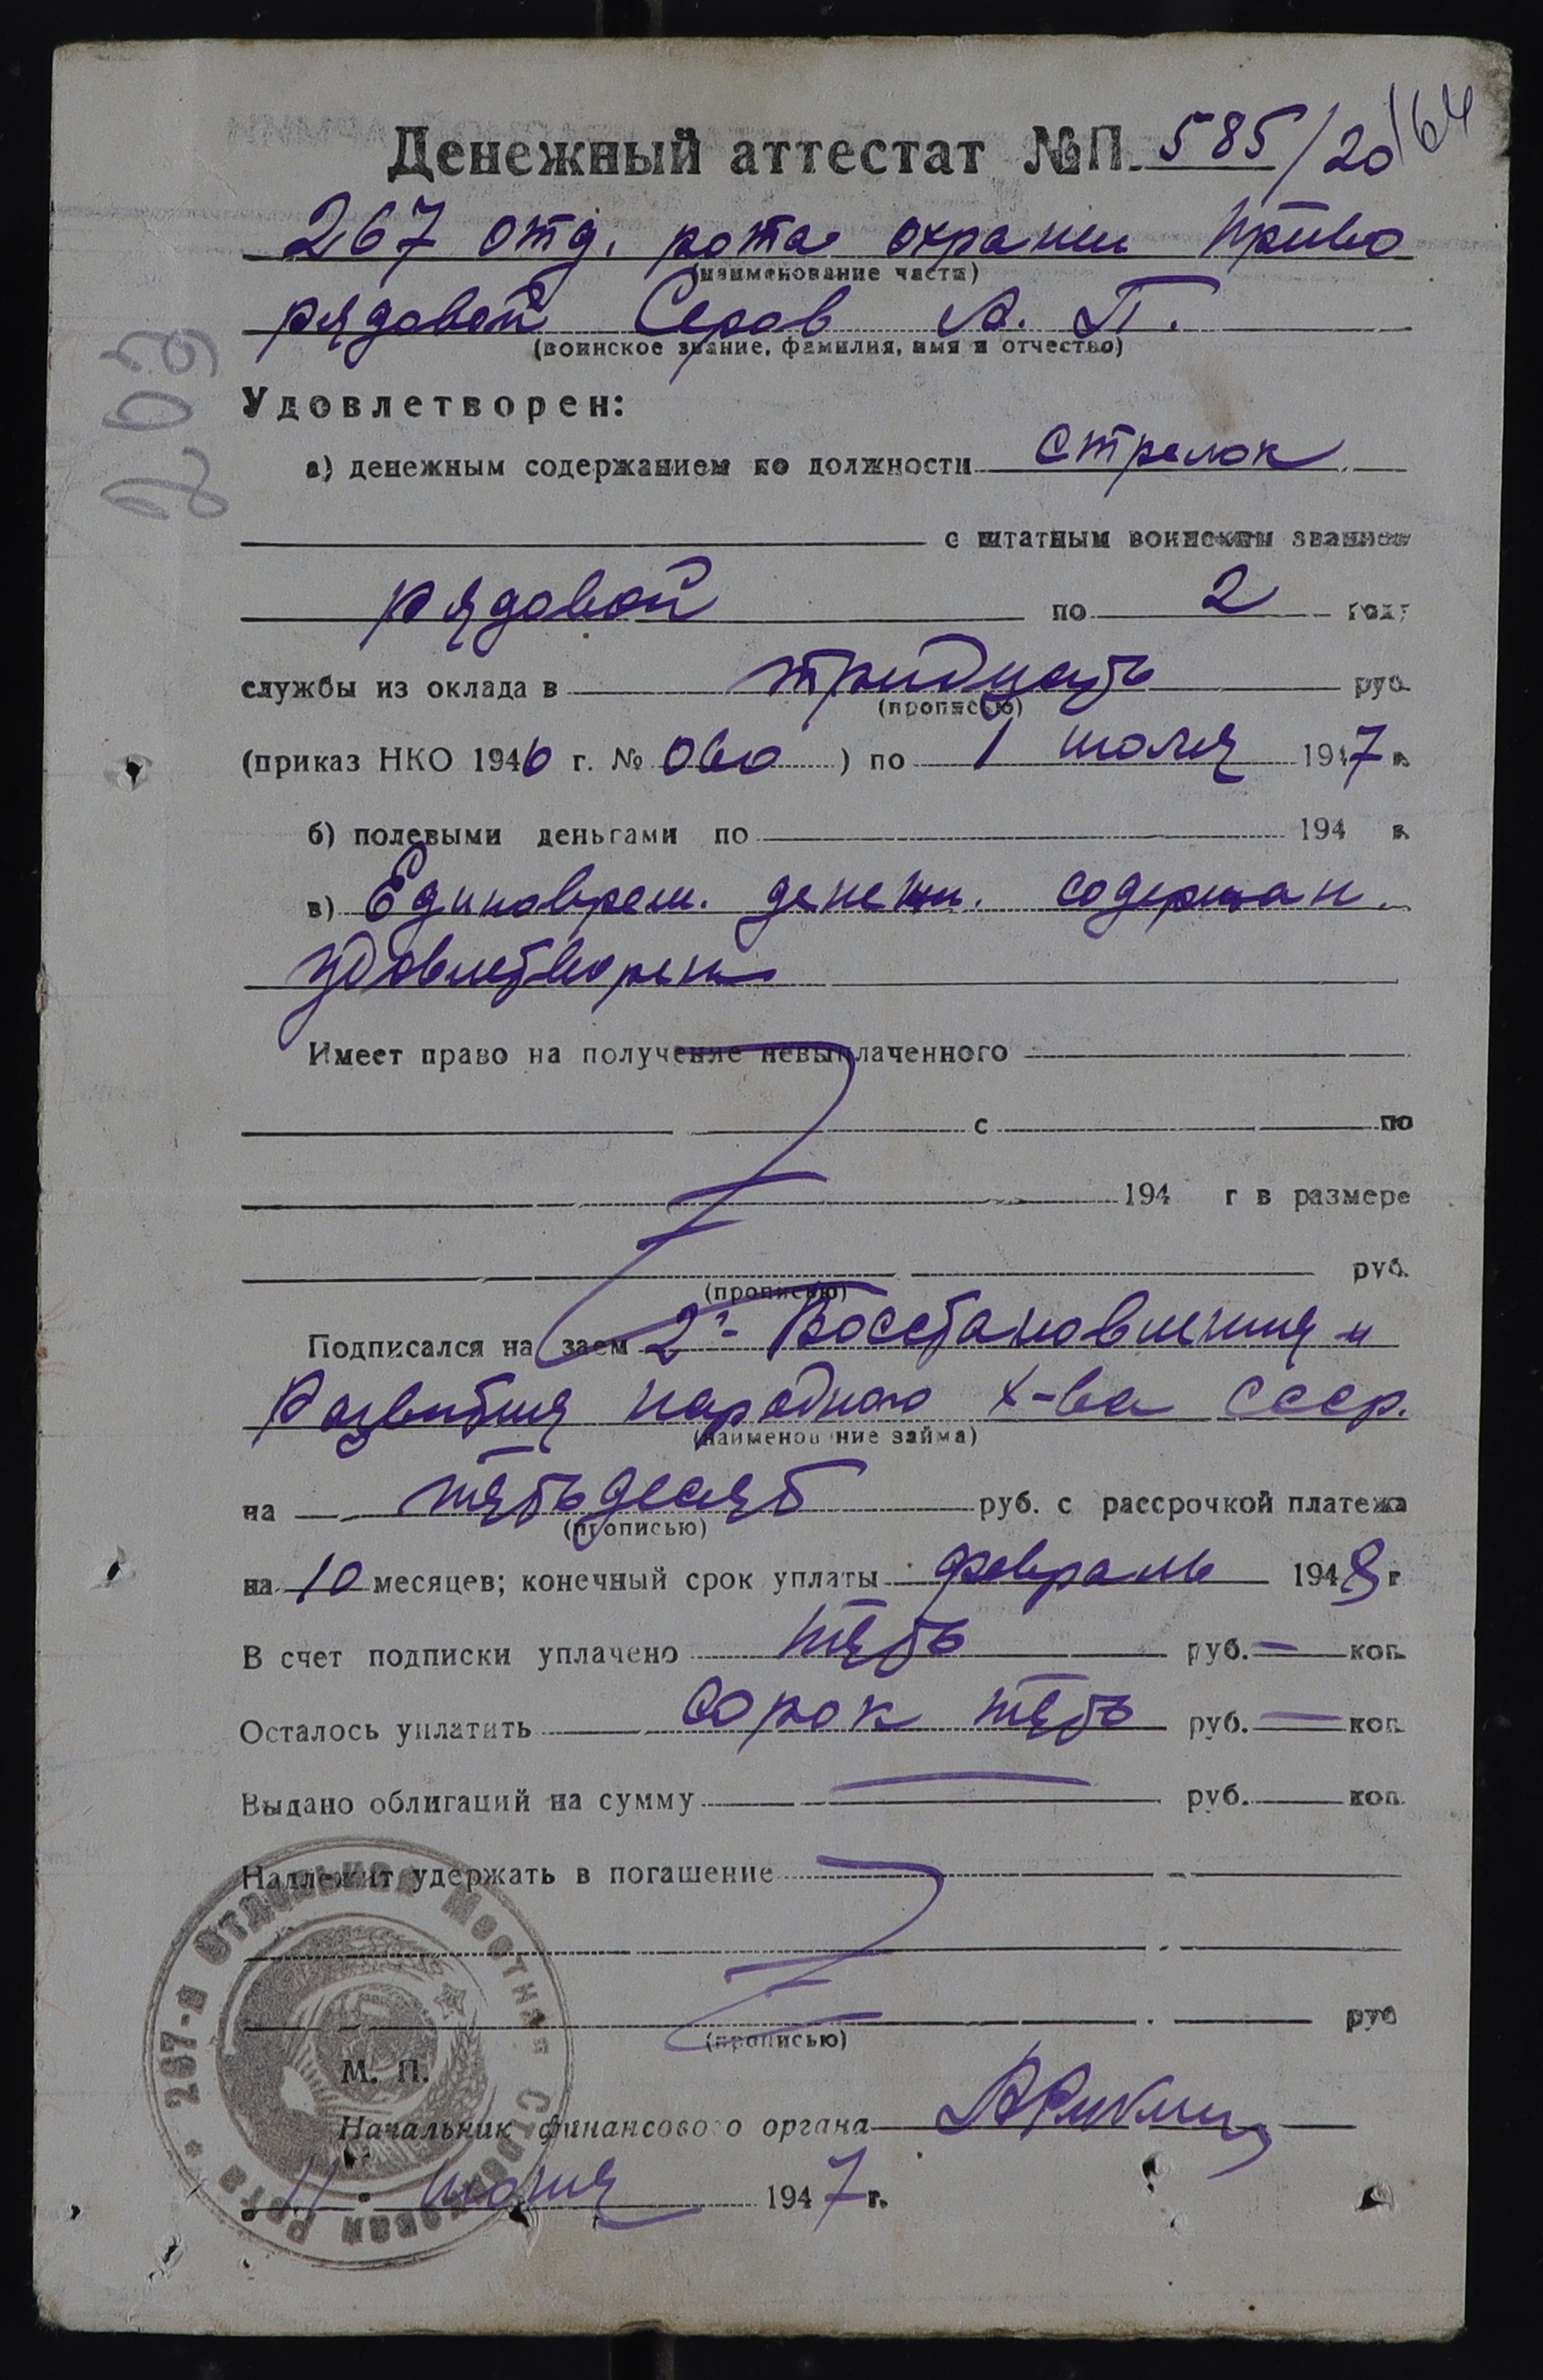 Денежный аттестат №П. 585/20
164
267 отд. рота охраны ПриВО
(наименование части)
рядовой Серов А. П.
(воинское звание, фамилия, имя и отчество)
209
Удовлетворен:
а) денежным содержанием по должности стрелок
с штатным воинским званием
рядовой по 2 году
службы из оклада в тридцать руб.
(прописью)
(приказ НКО 1946 г. № 060) по 1 июля 1947 г.
б) полевыми деньгами по 194 г.
в) Единоврем. денежн. содержан.
удовлетворен
Имеет право на получение невыплаченного
с по
194 г в размере
руб.
(прописью)
Подписался на заем 2й Восстановления и
Развития народного х-ва СССР.
(наименование займа)
на пятьдесят руб. с рассрочкой платежа
(прописью)
на 10 месяцев; конечный срок уплаты февраль 1948 г
В счет подписки уплачено пять руб. — коп.
Осталось уплатить сорок пять руб. — коп.
Выдано облигаций на сумму — руб. коп.
Надлежит удержать в погашение
руб
(прописью)
М. П.
267-я Отдельная Местная Стрелковая Рота
Начальник финансового органа
11 июня 1947 г.